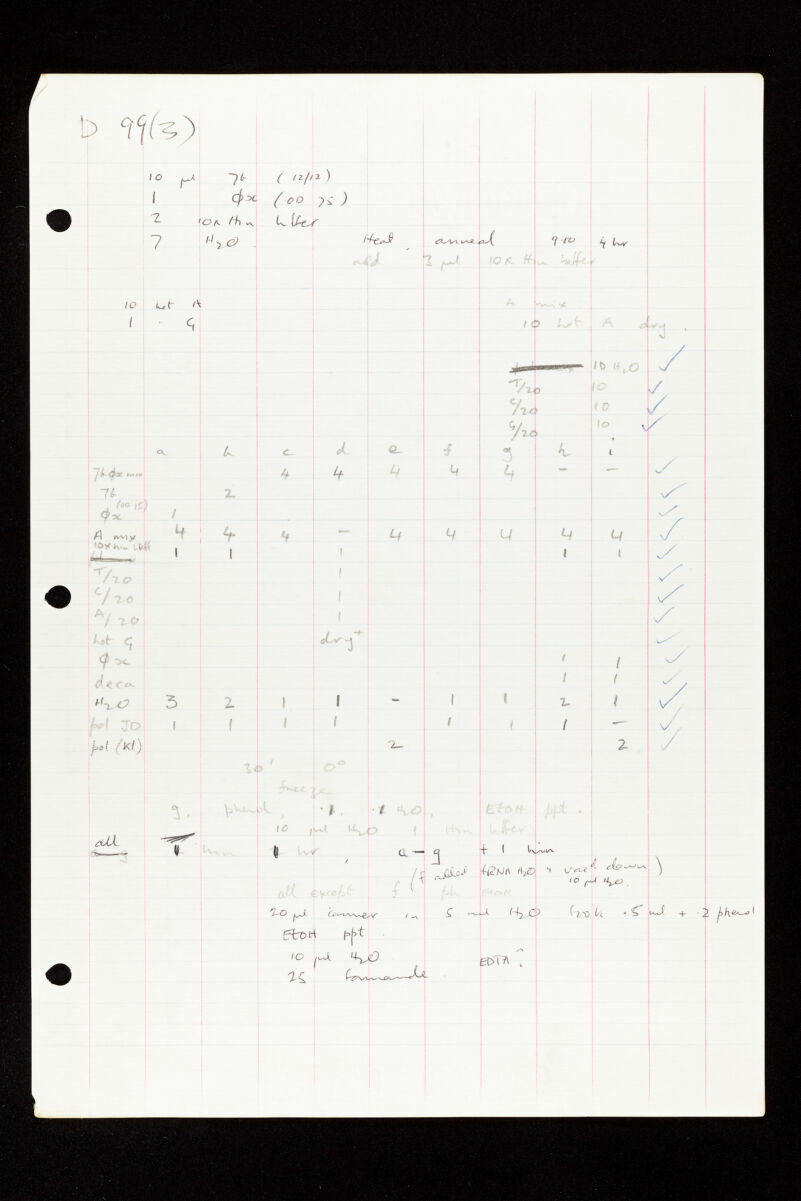 D 99(3)
10 µl 7b (12/12)
1 φx (00 75)
2 10x Hin buffer
7 H2O Heat, anneal 910 4 hr
add 3 µl 10x Hin buffer
10 hot A A mix
1 - G 10 hot A dry.
10 H2O ✓
T/20 10 ✓
C/20 10 ✓
G/20 10 ✓
a b c d e f g h i
7b φx mix 4 4 4 4 4 - - ✓
7b 2 ✓
φx (00 15) 1 ✓
A mix 4 4 4 - 4 4 4 4 4 ✓
10x Hin buff 1 1 1 1 1 ✓
T/20 1 ✓
C/20 1 ✓
A/20 1 ✓
hot G dry+ ✓
φx 1 1 ✓
deca 1 1 ✓
H2O 3 2 1 1 - 1 1 2 1 ✓
pol JD 1 1 1 1 1 1 1 - ✓
pol (Kl) 2 2 ✓
30' 0°
freeze
g, phenol, ·1, ·1 H2O, EtOH ppt.
10 µl H2O 1 Hin buffer
all 1 hin 1 hr, a-g + 1 hin
(f added tRNA H2O & vac'd down)
10 µl H2O.
all except f ph EtOH
20 µl in 5 ml H2O ·5 ml + ·2 phenol
EtOH ppt.
10 µl H2O. EDTA?
25 formamide.